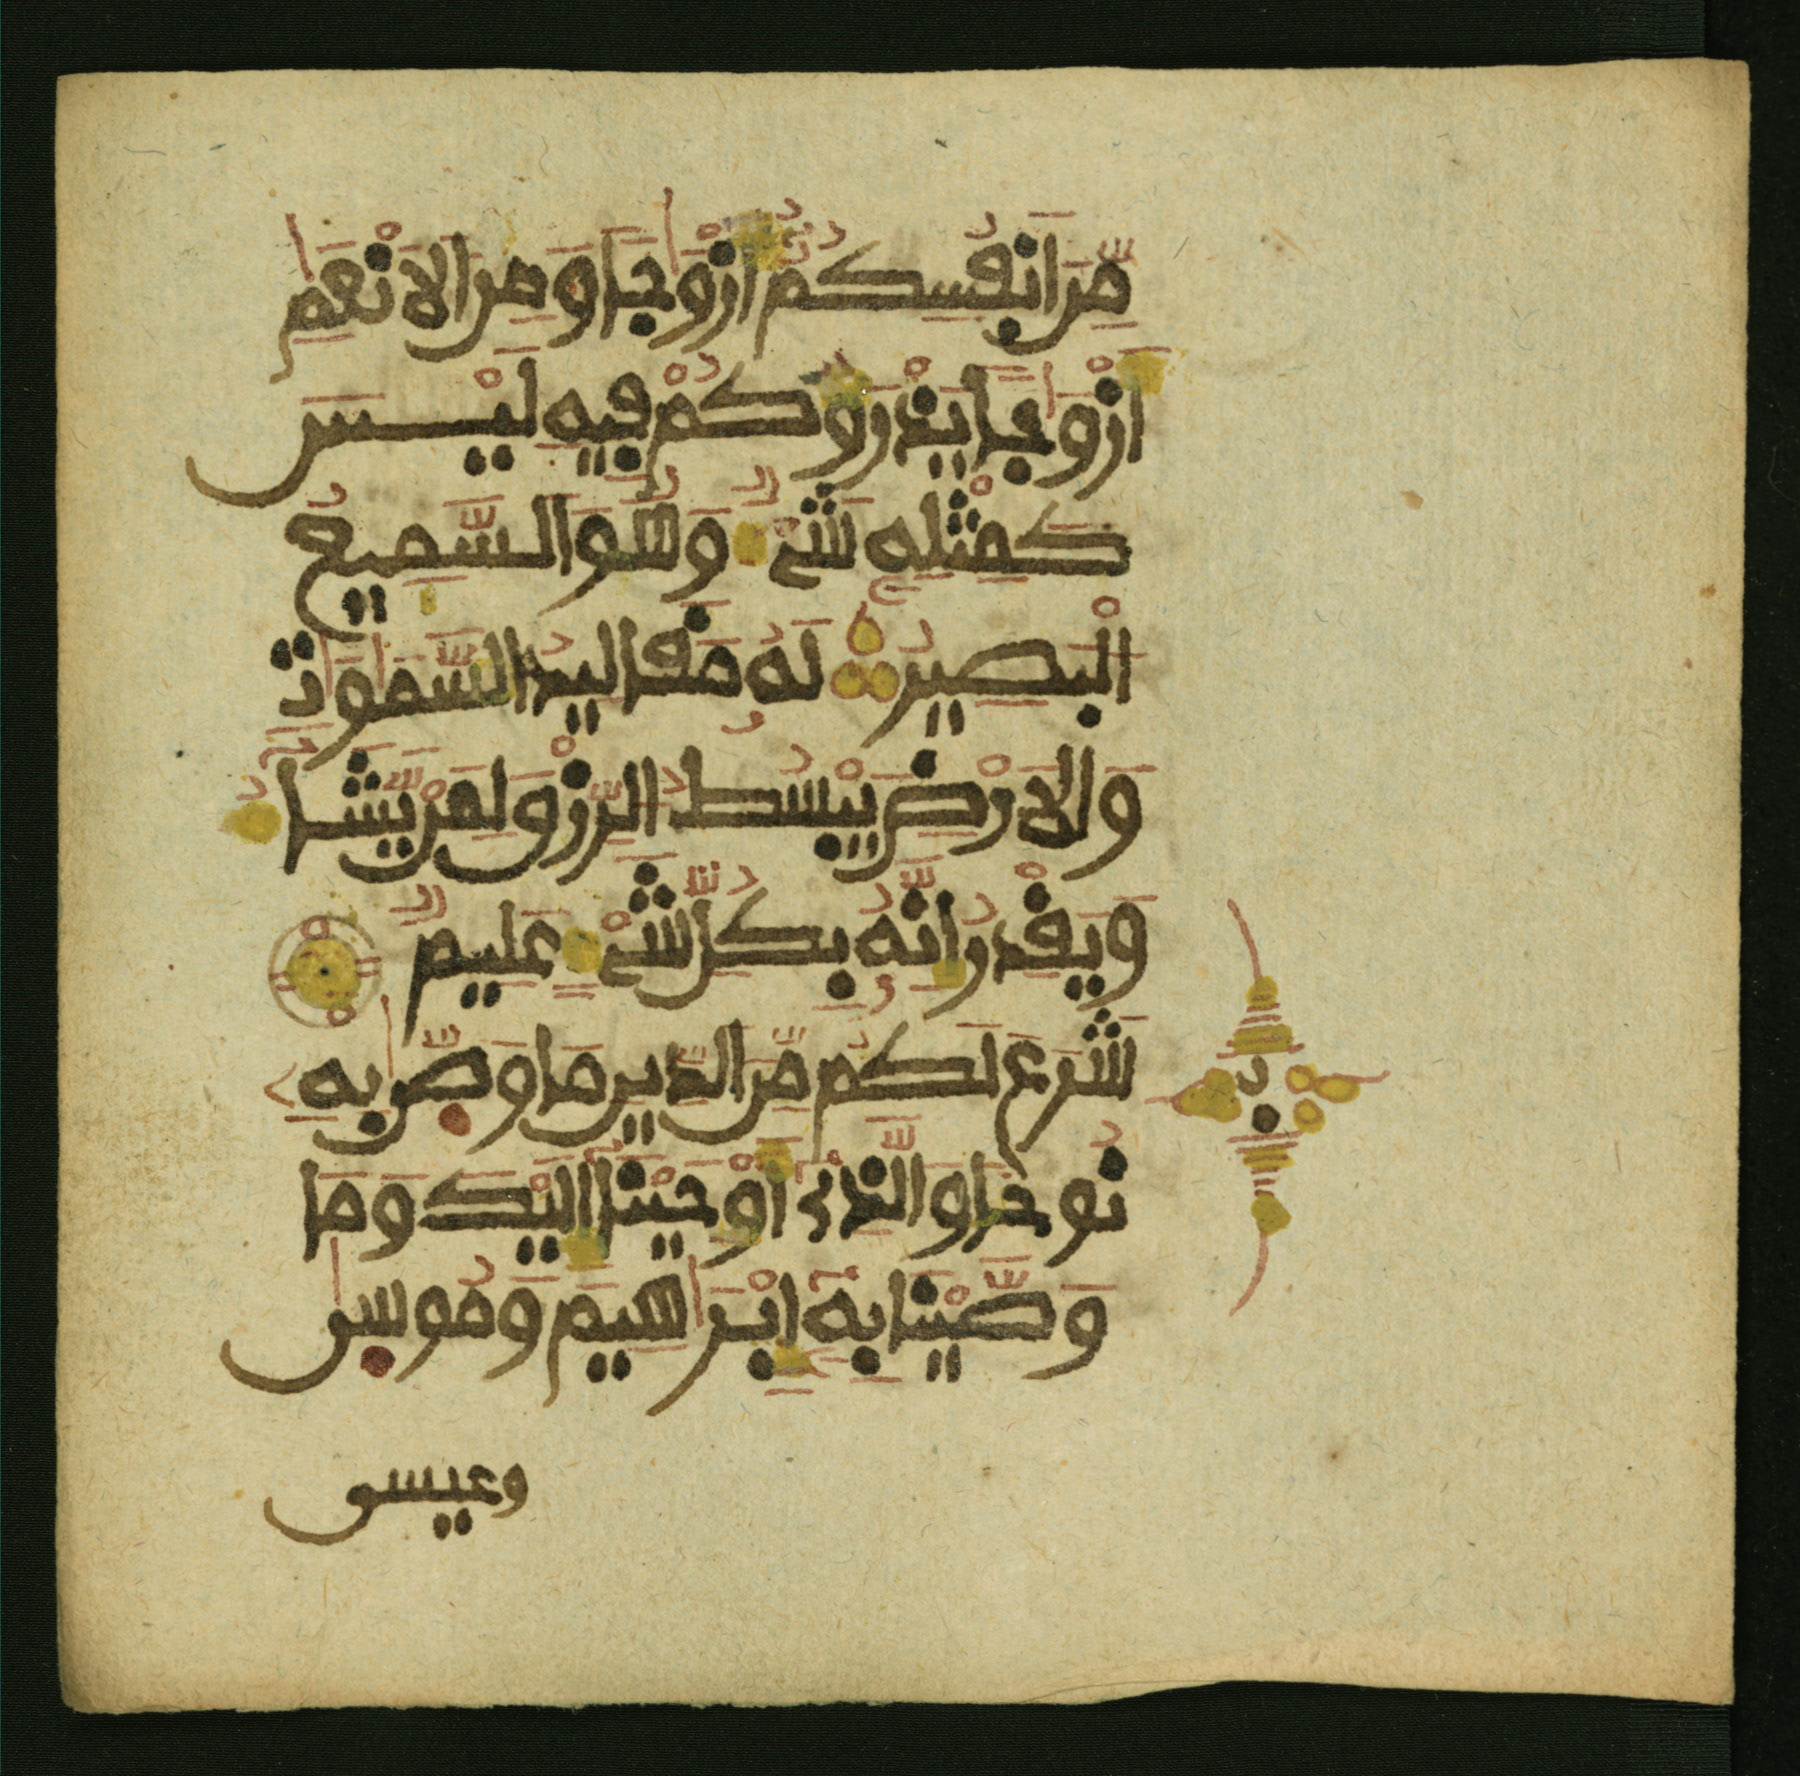 مِّنَ اَنفُسِكُمُۥٓ أَزْوَٰجٗا وَمِنَ الَانْعَٰمِ
أَزْوَٰجٗا يَذْرَؤُكُمْ فِيهِ لَيْسَ
كَمِثْلِهِۦ شَےْءٞ وَهُوَ السَّمِيعُ
الْبَصِيرُ لَهُۥ مَقَالِيدُ السَّمَٰوَٰتِ
وَالَارْضِ يَبْسُطُ الرِّزْقَ لِمَنْ يَّشَآءُ
وَيَقْدِرُ إِنَّهُۥ بِكُلِّ شَےْءٍ عَلِيمٞ
شَرَعَ لَكُم مِّنَ الدِّينِ مَا وَصّٜىٰ بِهِۦ
نُوحٗا وَالَّذِےٓ أَوْحَيْنَآ إِلَيْكَ وَمَا
وَصَّيْنَا بِهِۦٓ إِبْرَٰهِيمَ وَمُوسٜىٰ
وعيسى